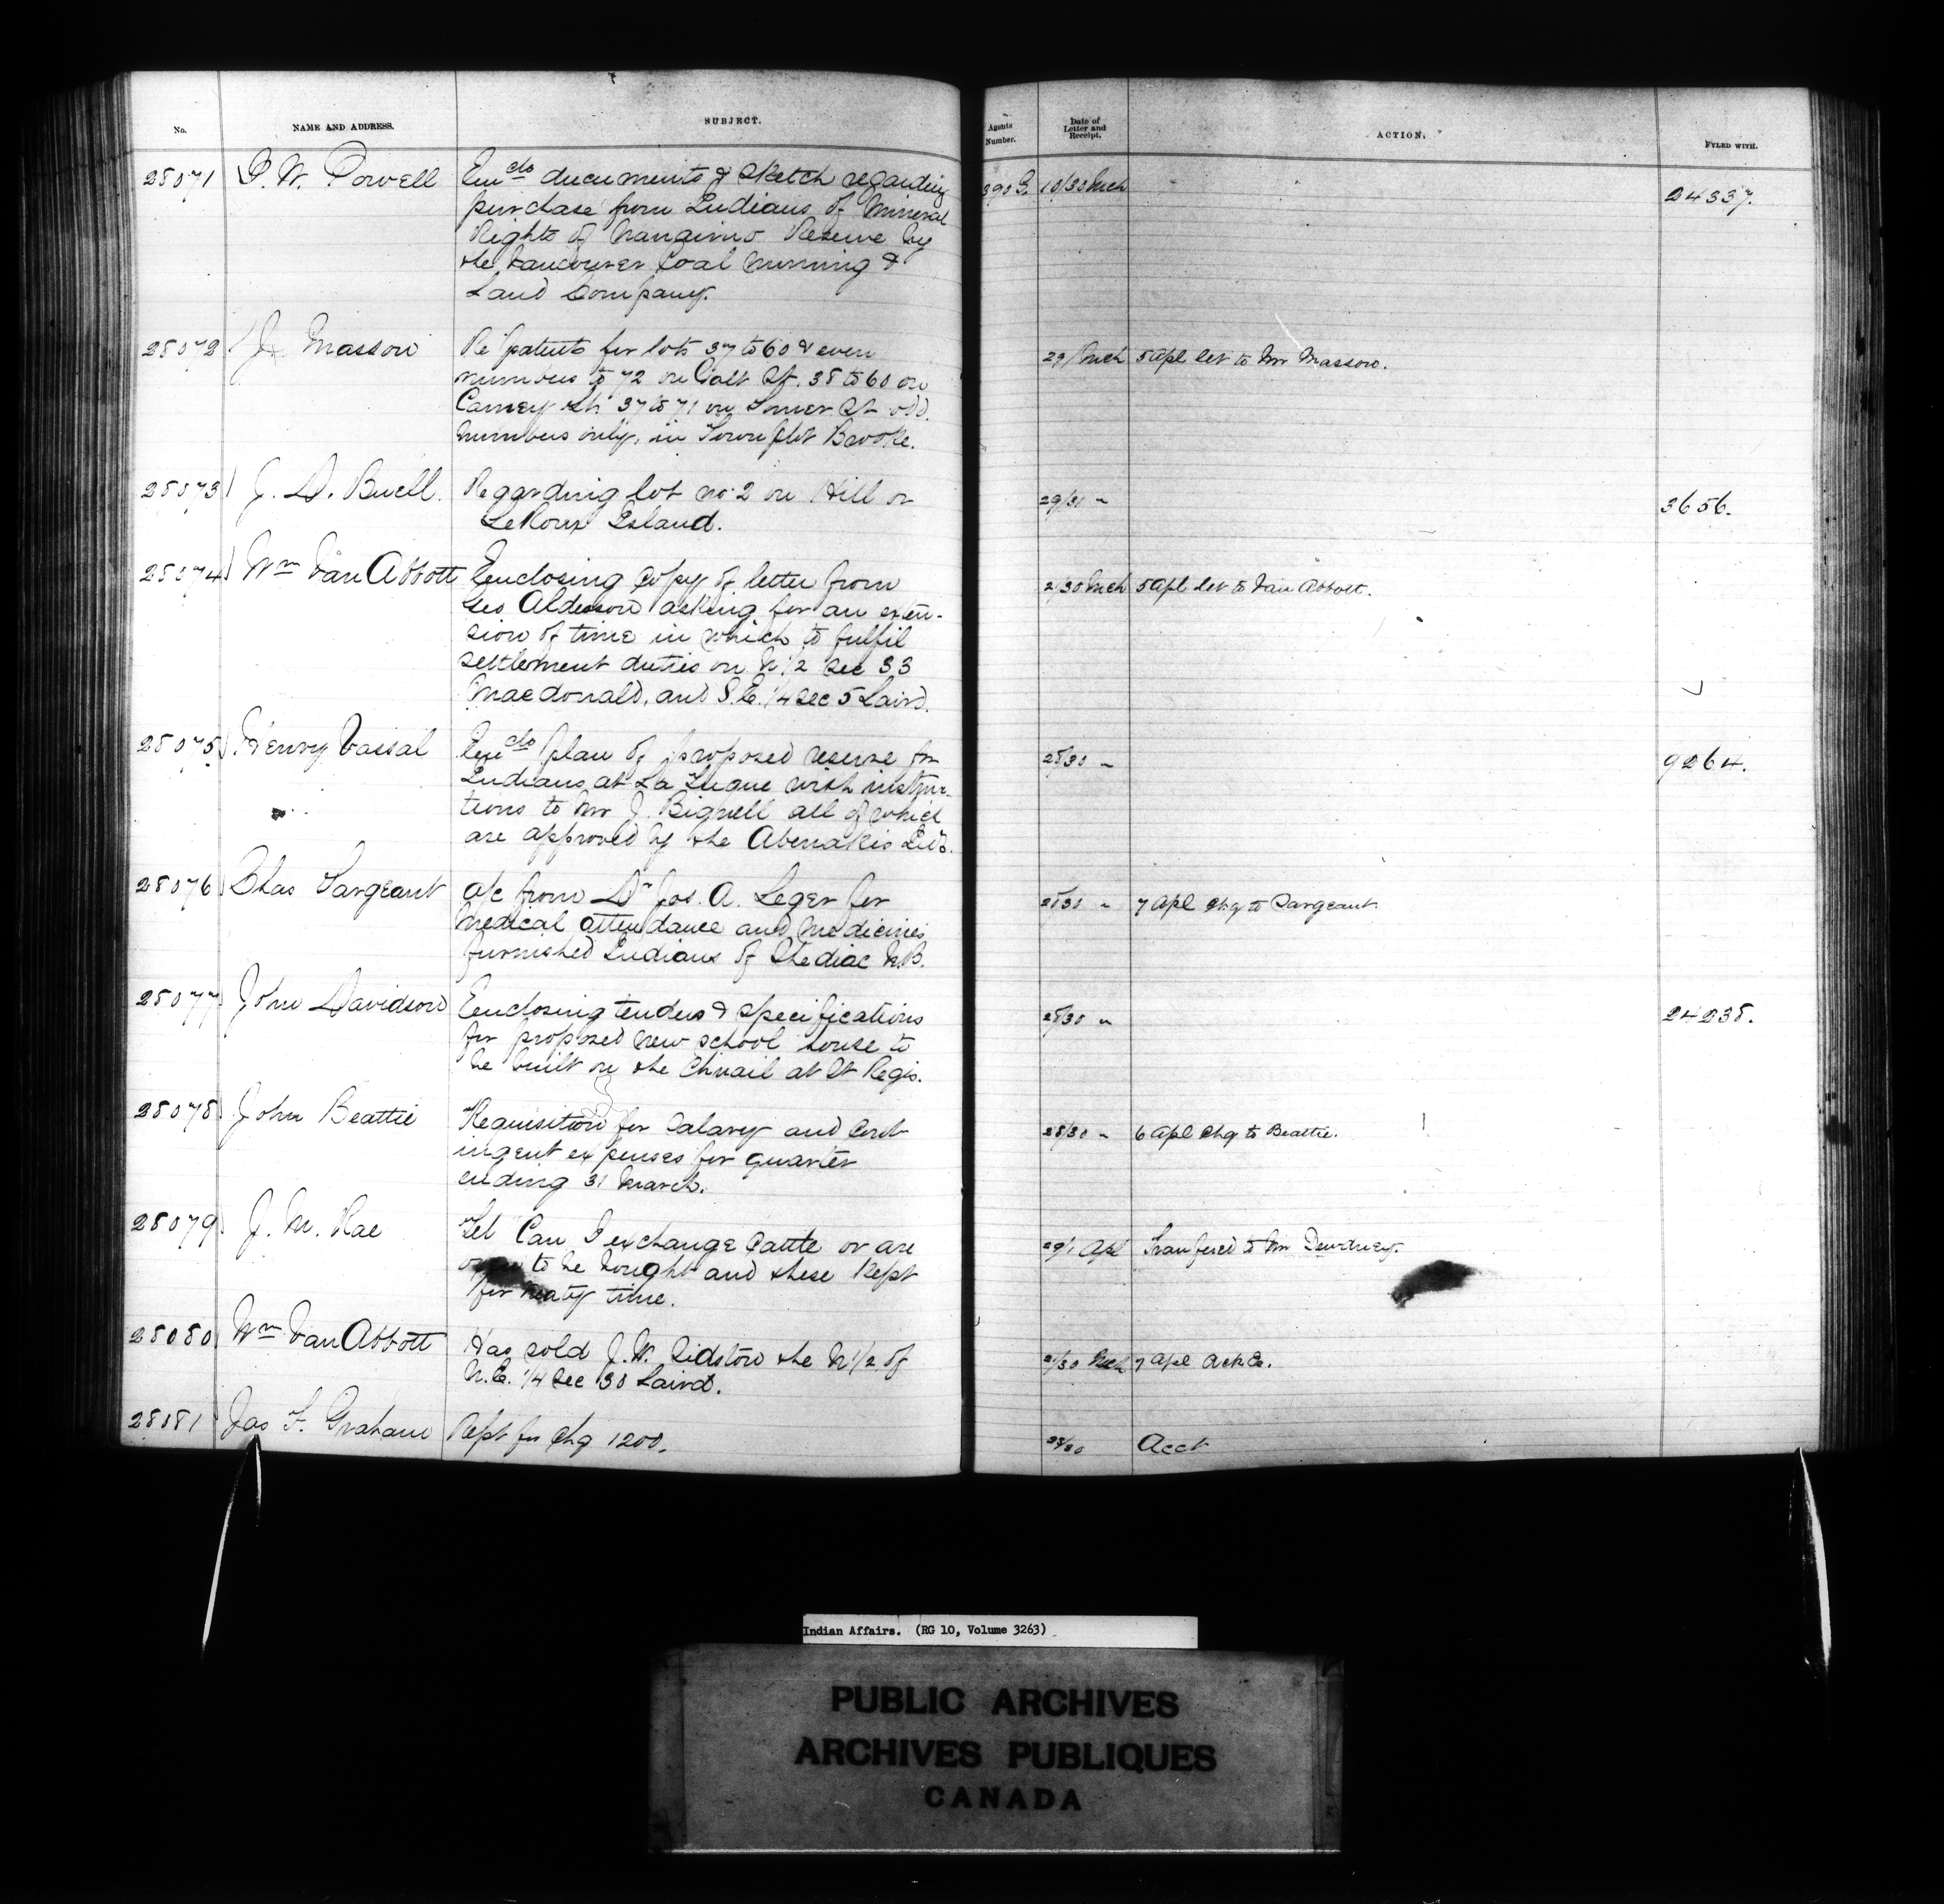 No.
NAME AND ADDRESS.
SUBJECT.
Agents
Number.
Date of
Letter and
Receipt.
ACTION.
FYLED WITH.
28071 I. W. Powell Encls documents & sketch regarding 390 G. 10/30 Mch 24337.
purchase from Indians of Mineral
Rights of Nanaimo Reserve by
the Vancouver Coal Mining &
Land Company.
28072 J. Masson Re patents for lots 37 to 60 & even 29/ Mch 5 Apl let to Mr Masson.
numbers to 72 on Galt St. 38 to 60 on
Carney St. 37 to 71 on Jones St odd
numbers only, in Town plot Brooke.
28073 J. D. Buell. Regarding lot no. 2 on Hill or 29/31 " 3656.
LeRoux Island.
28074 Wm Van Abbott Enclosing copy of letter from 2/30 Mch 5 Apl let to Van Abbott.
Geo Alderson asking for an exten-
sion of time in which to fulfil
settlement duties on N. 1/2 sec 33
Macdonald, and S.E. 1/4 sec 5 Laird.
28075 Henry Vassal Encls plan of proposed reserve for 28/30 " 9264.
Indians at La Tuque with instruc-
tions to Mr J. Bignell all of which
are approved by the Abenakis Inds.
28076 Chas Sargeant a/c from Dr Jos. A. Leger for 28/30 " 7 Apl Chq to Sargeant
medical attendance and medicines
furnished Indians of Shediac N.B.
28077 John Davidson Enclosing tenders & specifications 28/30 " 24238.
for proposed new school house to
be built on the Chinail at St Regis.
28078 John Beattie Requisition for salary and cont 28/30 " 6 Apl Chq to Beattie.
ingent expenses for quarter
ending 31 March.
28079 J. M. Rae Tel Can I exchange cattle or are 29/1 Apl Transfered to Mr Dewdney.
to be bought and these kept
for treaty time.
28080 Wm Van Abbott Has sold J. W. Sidstow the N 1/2 of 2/30 Mch 7 Apl Ack &c.
N.E. 1/4 Sec 30 Laird.
28081 Jas F. Graham Rept for Chq 1200. 28/30 Acct
Indian Affairs. (RG 10, Volume 3263)
PUBLIC ARCHIVES
ARCHIVES PUBLIQUES
CANADA